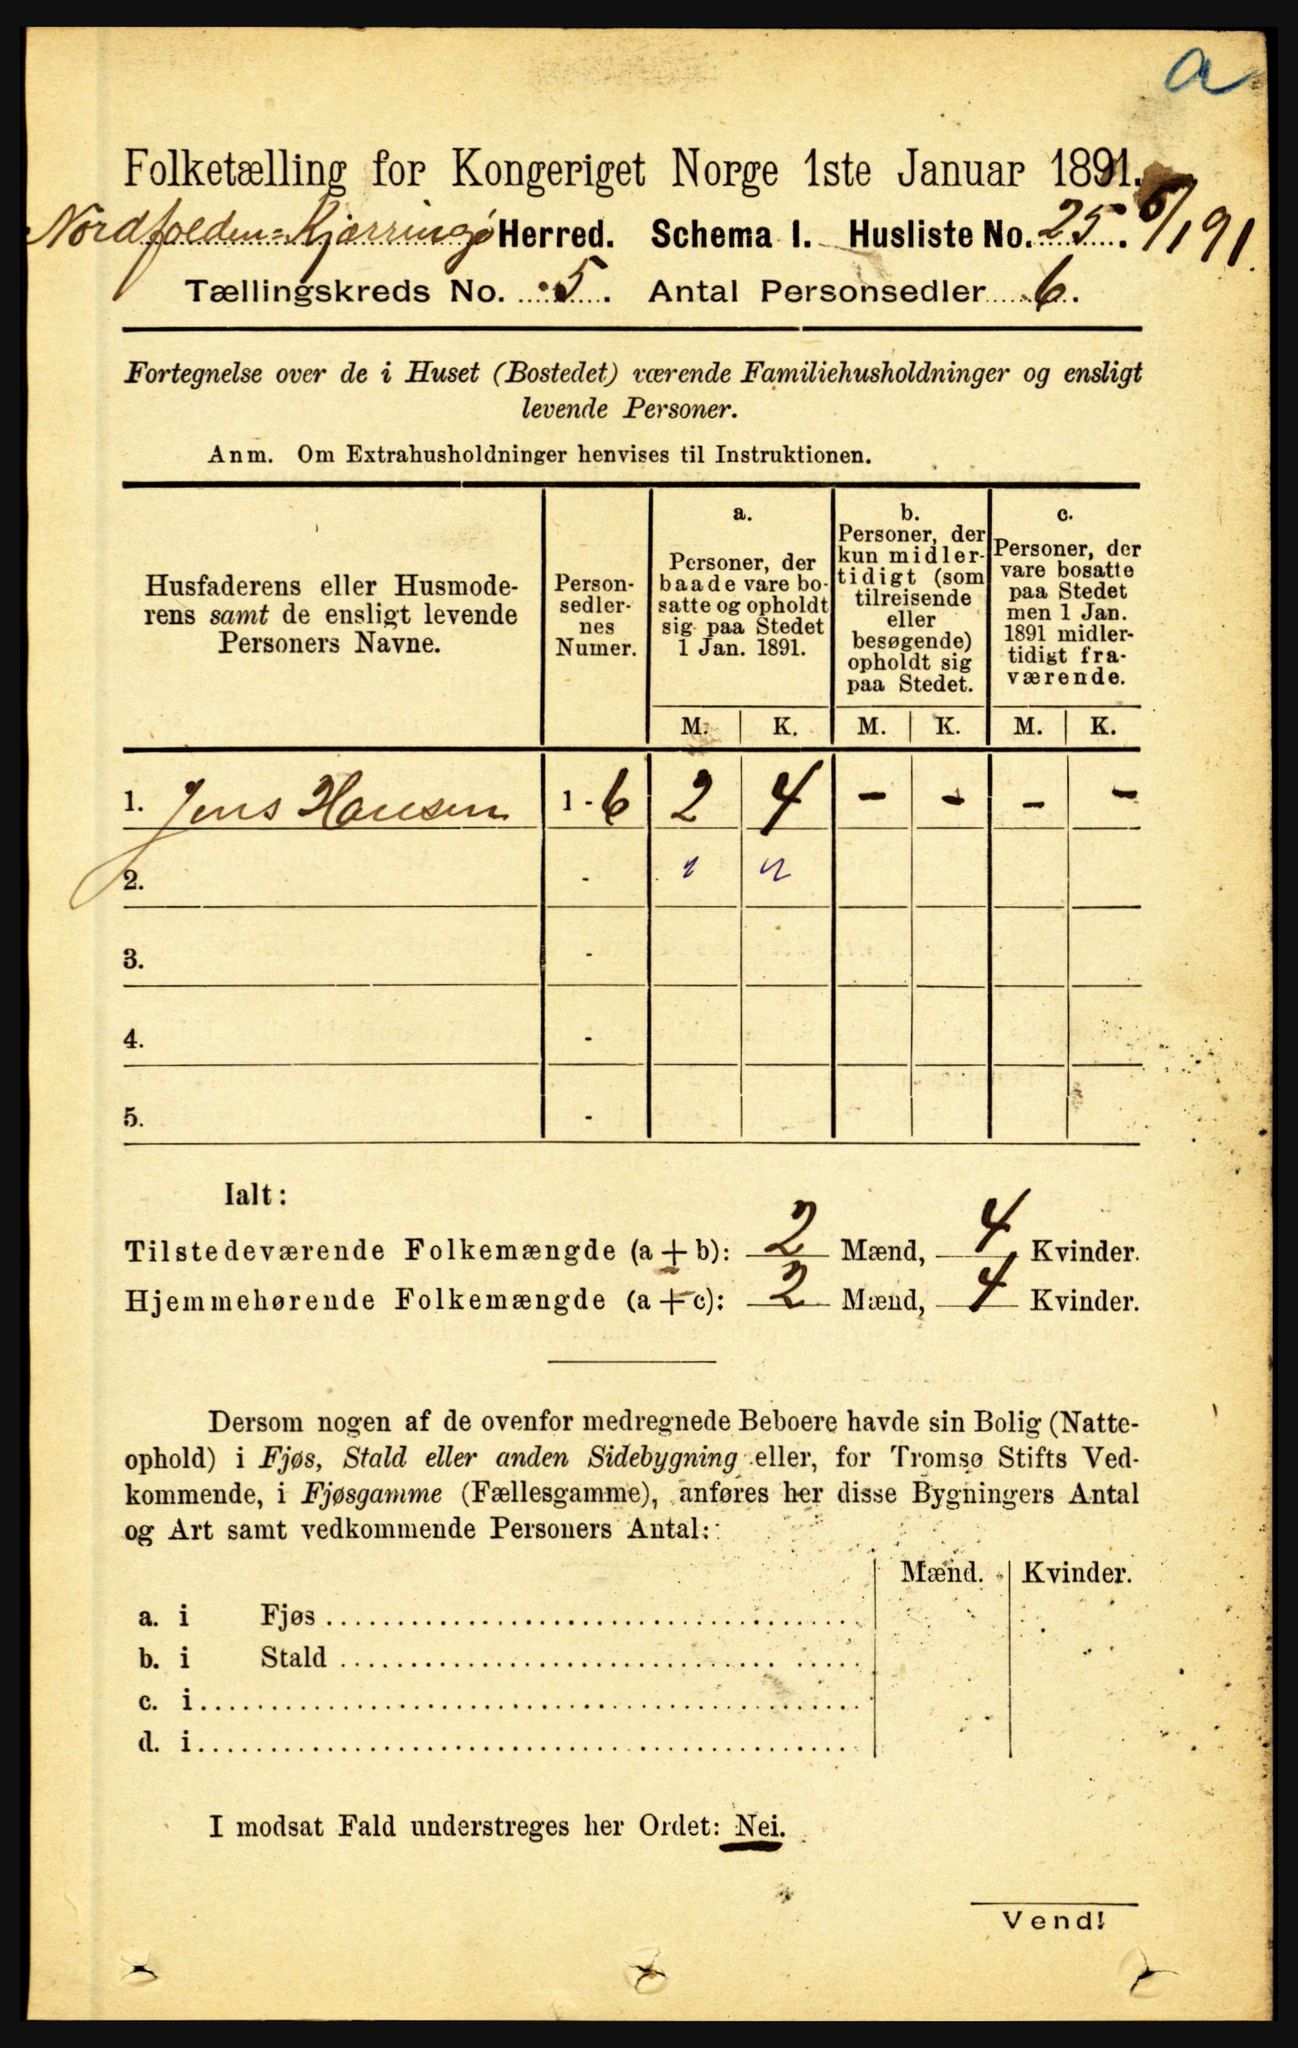 a
Folketælling for Kongeriget Norge 1ste Januar 1891.
Nordfolden-Kjærringø Herred. Schema I. Husliste No. 25. 6/1 91.
Tællingskreds No. 5. Antal Personsedler 6.
Fortegnelse over de i Huset (Bostedet) værende Familiehusholdninger og ensligt
levende Personer.
Anm. Om Extrahusholdninger henvises til Instruktionen.
Husfaderens eller Husmode-
rens samt de ensligt levende
Personers Navne.
Person-
sedler-
nes
Numer.
a.
Personer, der
baade vare bo-
satte og opholdt
sig paa Stedet
1 Jan. 1891.
b.
Personer, der
kun midler-
tidigt (som
tilreisende
eller
besøgende)
opholdt sig
paa Stedet.
c.
Personer, der
vare bosatte
paa Stedet
men 1 Jan.
1891 midler-
tidigt fra-
værende.
M. K. M. K. M. K.
1. Jens Hansen 1 - 6 2 4 - - - -
2. -
3. -
4. -
5. -
Ialt:
Tilstedeværende Folkemængde (a + b): 2 Mænd, 4 Kvinder.
Hjemmehørende Folkemængde (a + c): 2 Mænd, 4 Kvinder.
Dersom nogen af de ovenfor medregnede Beboere havde sin Bolig (Natte-
ophold) i Fjøs, Stald eller anden Sidebygning eller, for Tromsø Stifts Ved-
kommende, i Fjøsgamme (Fællesgamme), anføres her disse Bygningers Antal
og Art samt vedkommende Personers Antal:
Mænd. Kvinder.
a. i Fjøs
b. i Stald
c. i
d. i
I modsat Fald understreges her Ordet: Nei.
Vend!